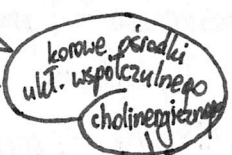 korowe ośrodki
ukł. współczulnego
cholinergicznego